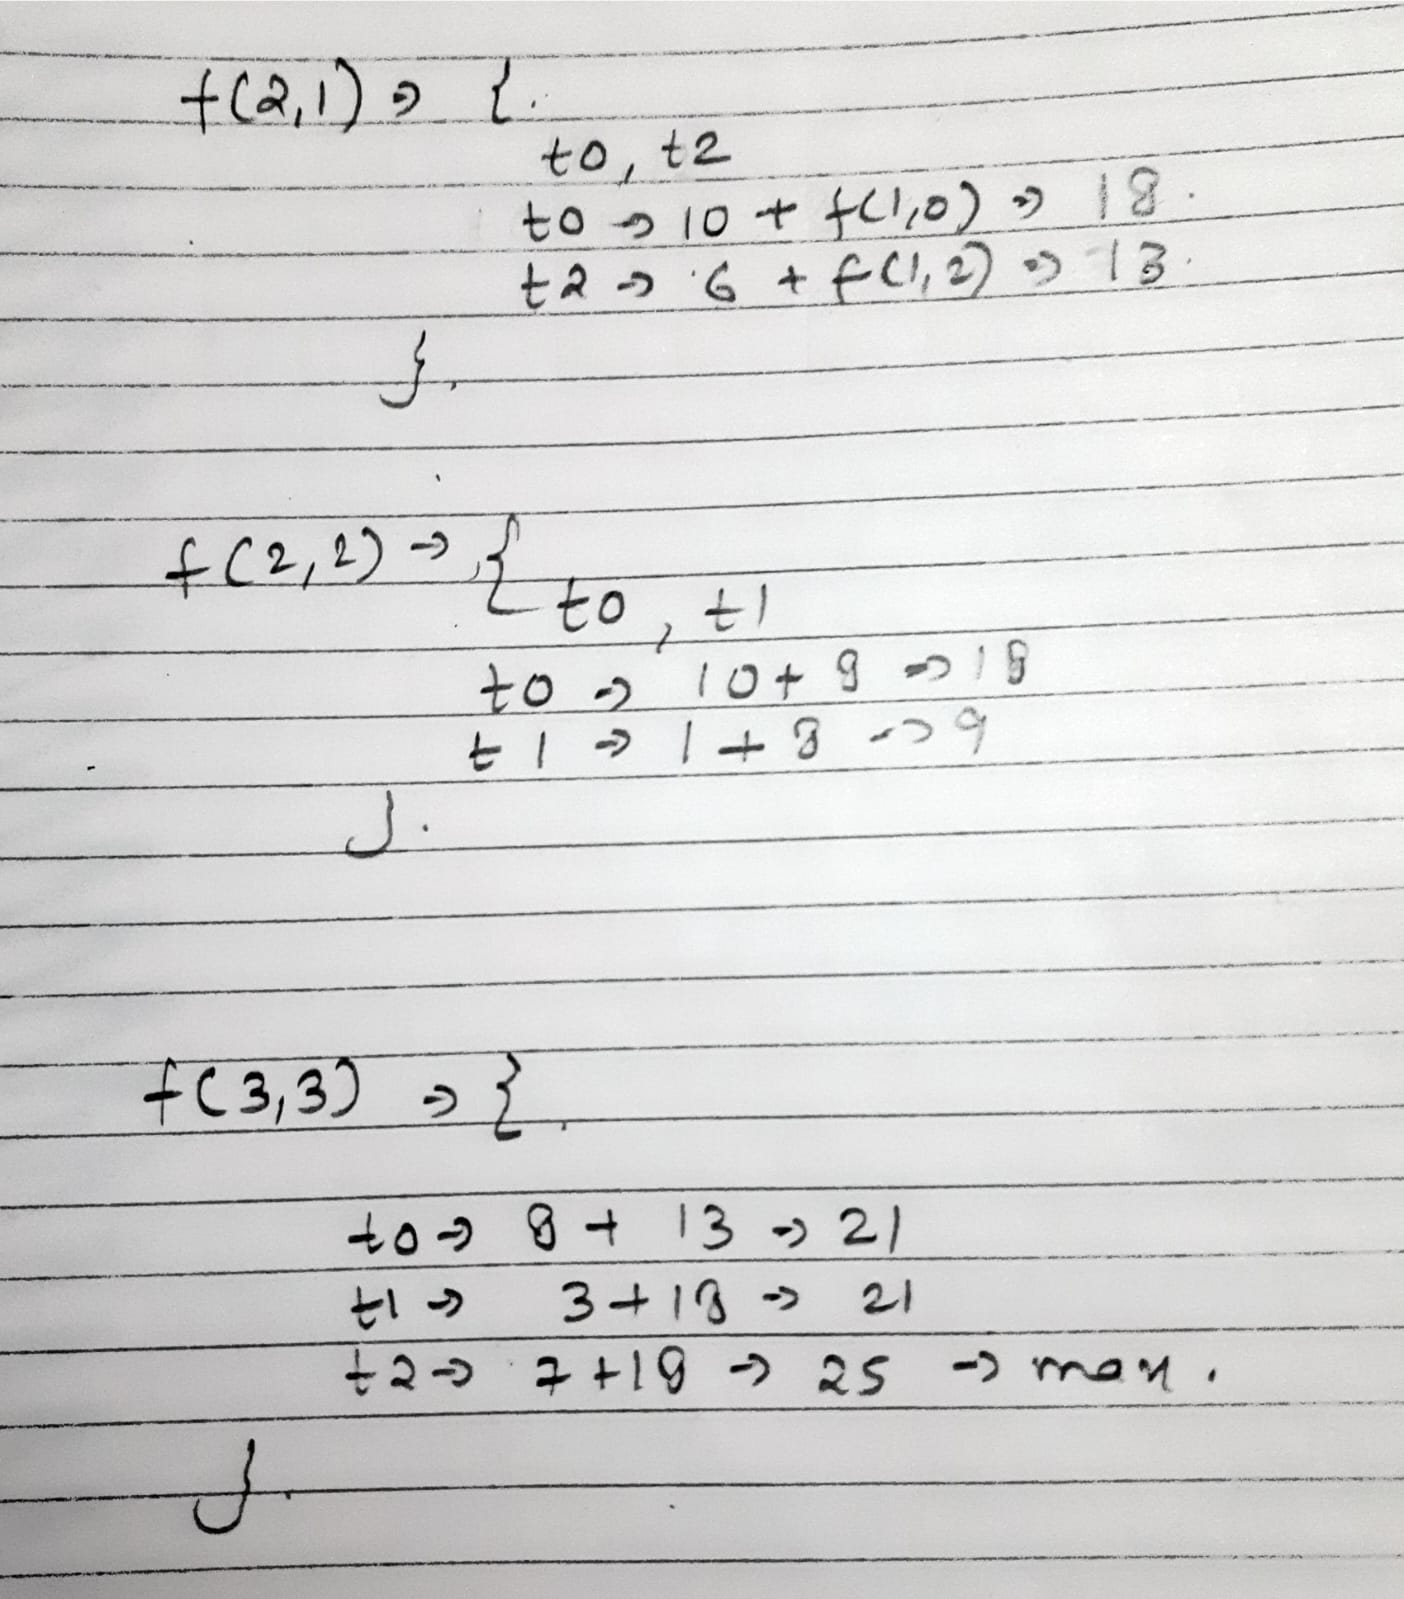 f(2,1) → {
t0, t2
t0 → 10 + f(1,0) → 18.
t2 → 6 + f(1,2) → 13.
}.
f(2,2) → {
t0, t1
t0 → 10 + 8 → 18
t1 → 1 + 8 → 9
}.
f(3,3) → {
t0 → 8 + 13 → 21
t1 → 3 + 18 → 21
t2 → 7 + 18 → 25 → max.
}.